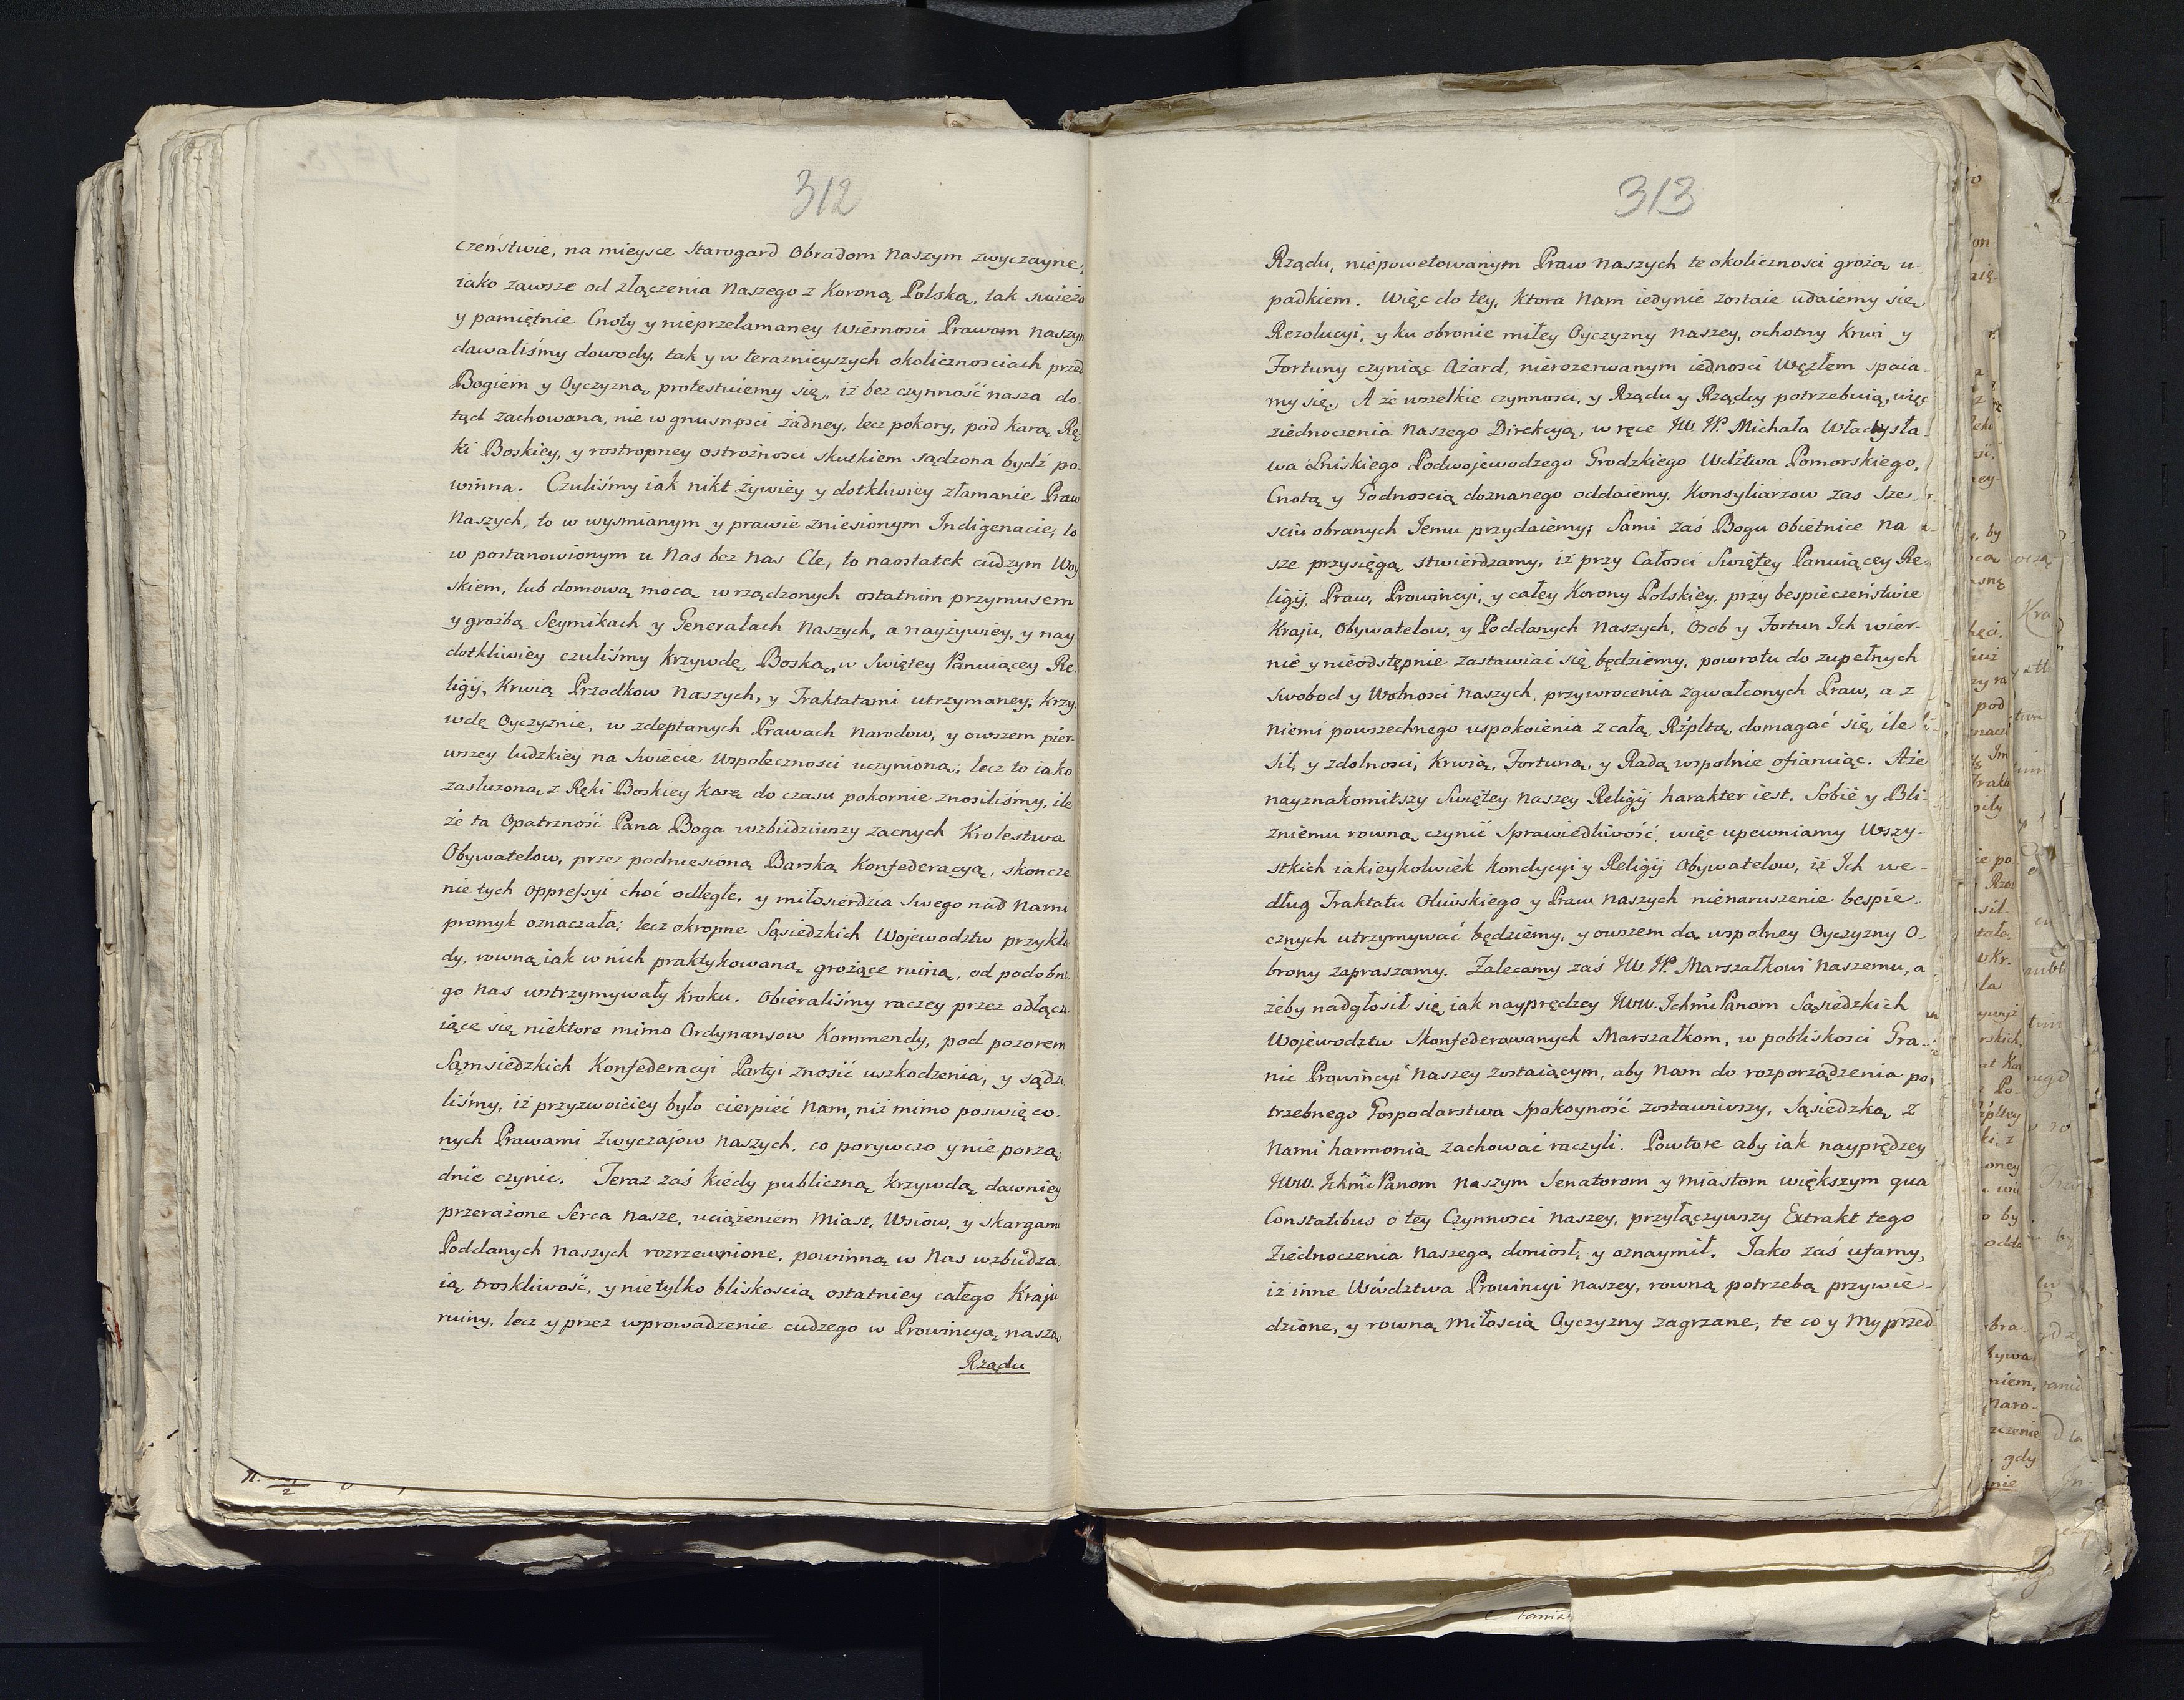 312
czeństwie, na mieysce Starogard Obradom Naszym zwyczayne,
iako zawsze od złączenia Naszego z Koroną Polską, tak swieżo
y pamiętnie Cnoty y nieprzełamaney wiernosci Prawom Naszym
dawaliśmy dowody, tak y w teraznieyszych okolicznosciach przed
Bogiem y Oyczyzną protestuiemy się, iż bez czynność nasza do
tąd zachowana, nie w gnusnosci żadney, lecz pokory, pod karą Rę
ki Boskiey, y rostropney ostrożnosci skutkiem sądzona bydź po
winna. Czuliśmy iak nikt żywiey y dotkliwiey złamanie Praw
Naszych, to w wysmianym y prawie zniesionym Indigenacie, to
w postanowionym u Nas bez Nas Cle, to naostatek cudzym Woy
skiem, lub domową mocą wrządzonych ostatnim przymusem
y groźbą Seymikach y Generałach Naszych, a nayżywiey, y nay
dotkliwiey czuliśmy krzywdę Boską, w Swiętey Panuiącey Re
ligij, Krwią Przodkow Naszych, y Traktatami utrzymaney; krzy
wdę Oyczyznie, w zdeptanych Prawach Narodow, y owszem pier-
wszey ludzkiey na Swiecie Wspołecznosci uczynioną; lecz to iako
zasłużoną z Ręki Boskiey karę do czasu pokornie znosiliśmy, ile
że ta Opatrzność Pana Boga wzbudziwszy zacnych Krolestwa
Obywatelow, przez podniesioną Barską Konfederacyą, skoncze
nie tych oppressyi choć odległe, y miłosierdzia Swego nad Nami
promyk oznaczała; lecz okropne Sąsiedzkich Wojewodztw przykła
dy, rowną iak w nich praktykowaną grożące ruiną, od podobne
go Nas wstrzymywały kroku. Obieraliśmy raczey przez odłącza
iące się niektore mimo Ordynansow Kommendy, pod pozorem
Sąmsiedzkich Konfederacyi Partyi znosić uszkodzenia, y sądzi
liśmy, iż przyzwoiciey było cierpieć Nam, niż mimo poswięco-
nych Prawami Zwyczajow Naszych, co porywczo y nie porzą
dnie czynic. Teraz zaś kiedy publiczną krzywdą dawniey
przerażone Serca Nasze, uciążeniem Miast, Wsiow, y skargami
Poddanych Naszych rozrzewnione, powinną w Nas wzbudza
ią troskliwość, y nietylko bliskoscią ostatniey całego Kraju
ruiny, lecz y przez wprowadzenie cudzego w Prowincyą naszą
Rządu
313
Rządu, niepowetowanym Praw Naszych te okolicznosci grożą u-
padkiem. Więc do tey, ktora Nam iedynie zostaie udaiemy się
Rezolucyi, y ku obronie miłey Oyczyzny Naszey, ochotny krwi y
Fortuny czyniąc Azard, nierozerwanym iednosci Węzłem spaia-
my się. A że wszelkie czynnosci, y Rządu y Rządcy potrzebuią, więc
ziednoczenia Naszego Direkcyą, w ręce JW. JP. Michała Władysła-
wa Lniskiego Podwojewodzego Grodzkiego Wdztwa Pomorskiego,
Cnotą y Godnoscią doznanego oddaiemy, Konsyliarzow zas Sze-
sciu obranych Jemu przydaiemy; Sami zaś Bogu Obietnice Na
sze przysięgą stwierdzamy, iż przy Całosci Swiętey Panuiącey Re-
ligij, Praw, Prowincyi, y całey Korony Polskiey, przy bespieczeństwie
Kraju, Obywatelow, y Poddanych Naszych, Osob y Fortun Ich wier-
nie y nieodstępnie zastawiai się będziemy, powrotu do zupełnych
Swobod y Wolnosci Naszych, przywrocenia zgwałconych Praw, a z
niemi powszechnego uspokoienia z całą Rzpltą domagać się, ile
Sił, y zdolnosci, Krwią, Fortuną, y Radą wspolnie ofiaruiąc. A że
nayznakomitszy Swiętey Naszey Religij harakter iest. Sobie y Bli-
zniemu rowną czynić Sprawiedliwość, więc upewniamy Wszy-
stkich iakieykolwiek Kondycyi y Religij Obywatelow, iż Ich we-
dług Traktatu Oliwskiego y Praw Naszych nienaruszenie bespie-
cznych utrzymywać będziemy, y owszem do wspolney Oyczyzny O-
brony zapraszamy. Zalecamy zaś JW. JP. Marszałkowi Naszemu, a
żeby nadgłosił się iak nayprędzey JWW. Ichmć Panom Sąsiedzkich
Wojewodztw Skonfederowanych Marszałkom, w pobliskosci Gra-
nic Prowincyi Naszey zostaiącym, aby Nam do rozporządzenia po-
trzebnego Gospodarstwa Spokoyność zostawiwszy, Sąsiedzką z
Nami harmonią zachować raczyli. Powtore aby iak nayprędzey
JWW. Ichmć Panom Naszym Senatorom y Miastom większym qua
Constatibus o tey Czynnosci Naszey, przyłączywszy Extrakt tego
Ziednoczenia Naszego, doniosł, y oznaymił. Jako zaś ufamy,
iż inne Wdztwa Prowincyi Naszey, rowną potrzebą przywie-
dzione, y rowną Miłoscią Oyczyzny zagrzane, te co y My przed